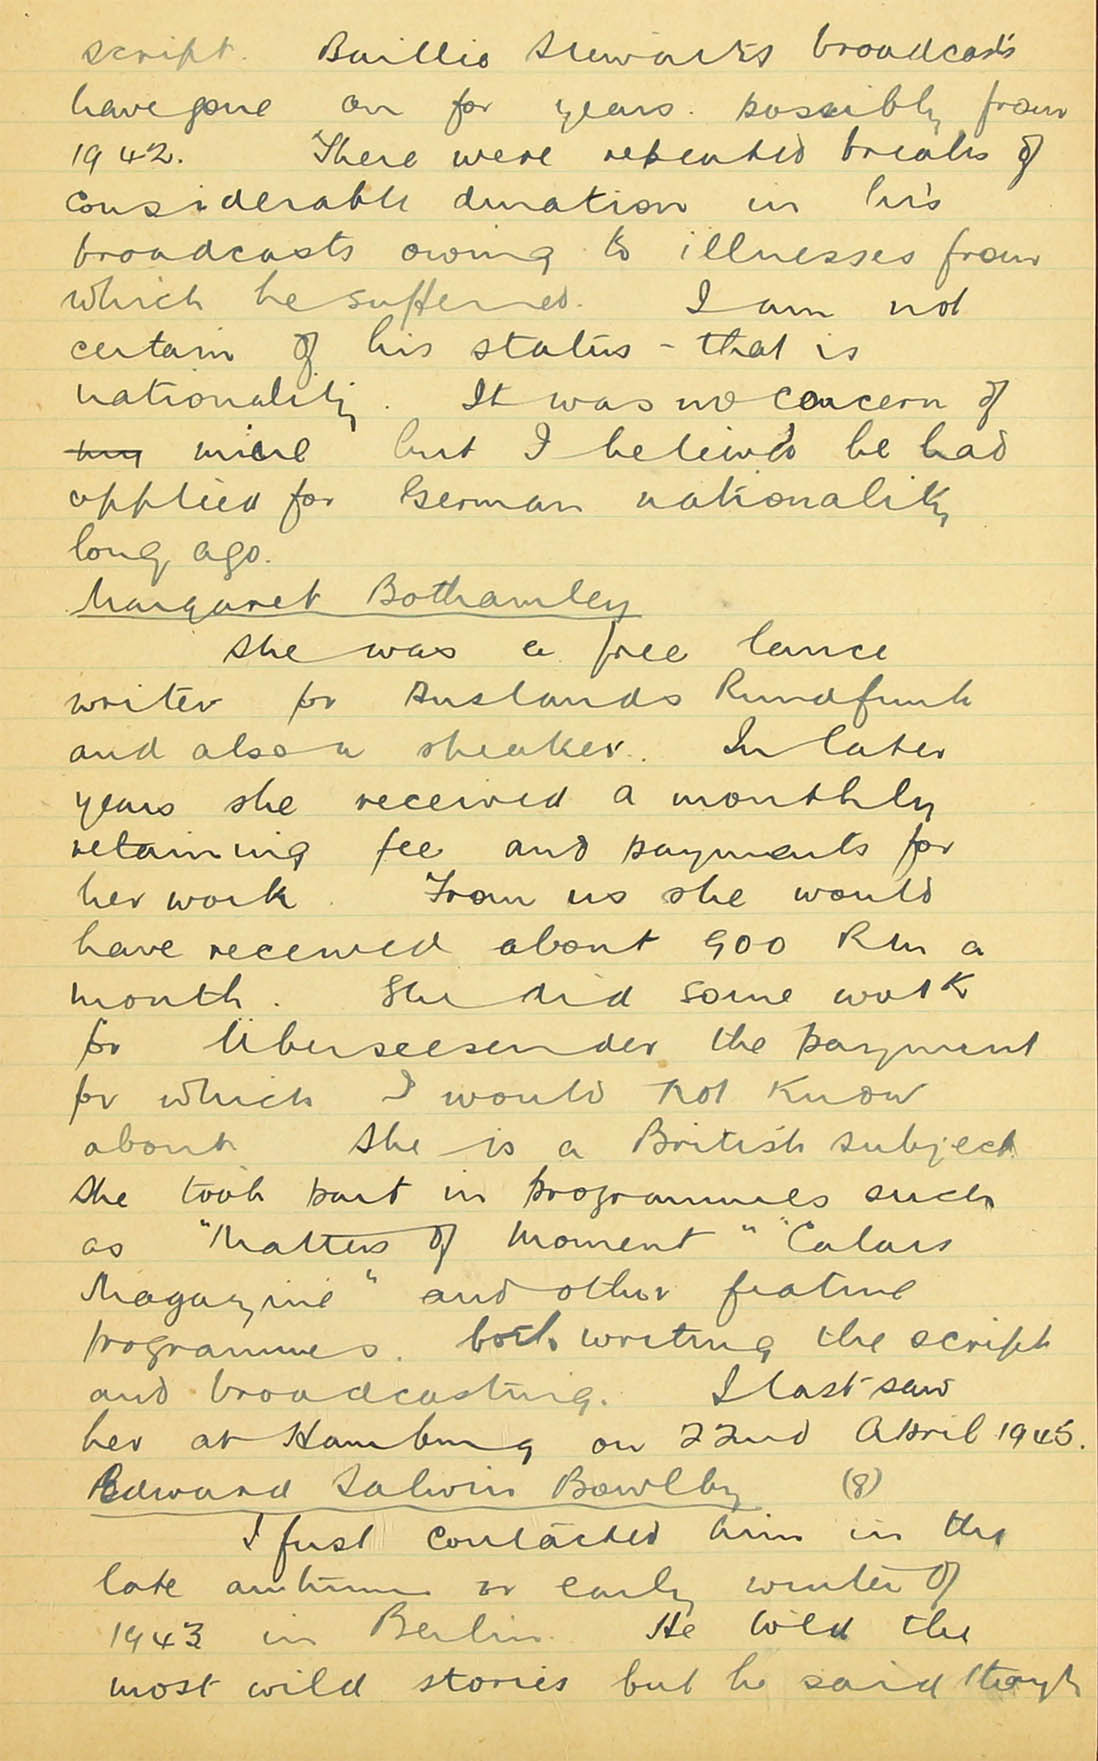 script. Baillie Stewart's broadcasts
have gone on for years. possibly from
1942. There were repeated breaks of
considerable duration in his
broadcasts owing to illnesses from
which he suffered. I am not
certain of his status - that is
nationality. It was no concern of
my mine but I believed he had
applied for German nationality
long ago.
Margaret Bothamley
She was a free lance
writer for Auslands Rundfunk
and also a speaker. In later
years she received a monthly
retaining fee and payments for
her work. From us she would
have received about 900 Rm a
month. She did some work
for Überseesender the payment
for which I would not know
about She is a British subject.
She took part in programmes such
as "Matters of Moment" "Calais
Magazine" and other feature
programmes. both writing the script
and broadcasting. I last saw
her at Hamburg on 22nd April 1945.
Edward Salvin Bowlby (8)
I first contacted him in the
late autumn or early winter of
1943 in Berlin. He told the
most wild stories but he said though